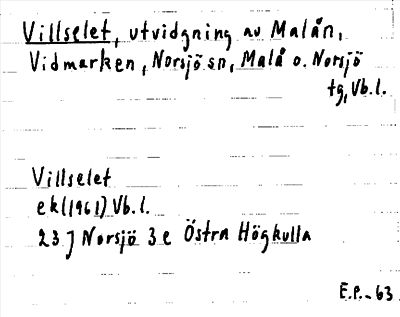 Villselet, utvidgning av Malån,
Vidmarken, Norsjö sn, Malå o. Norsjö
tg, Vb.l.
Villselet
ek(1961) Vb.l.
23 J Norsjö 3 e Östra Högkulla
E.P.-63